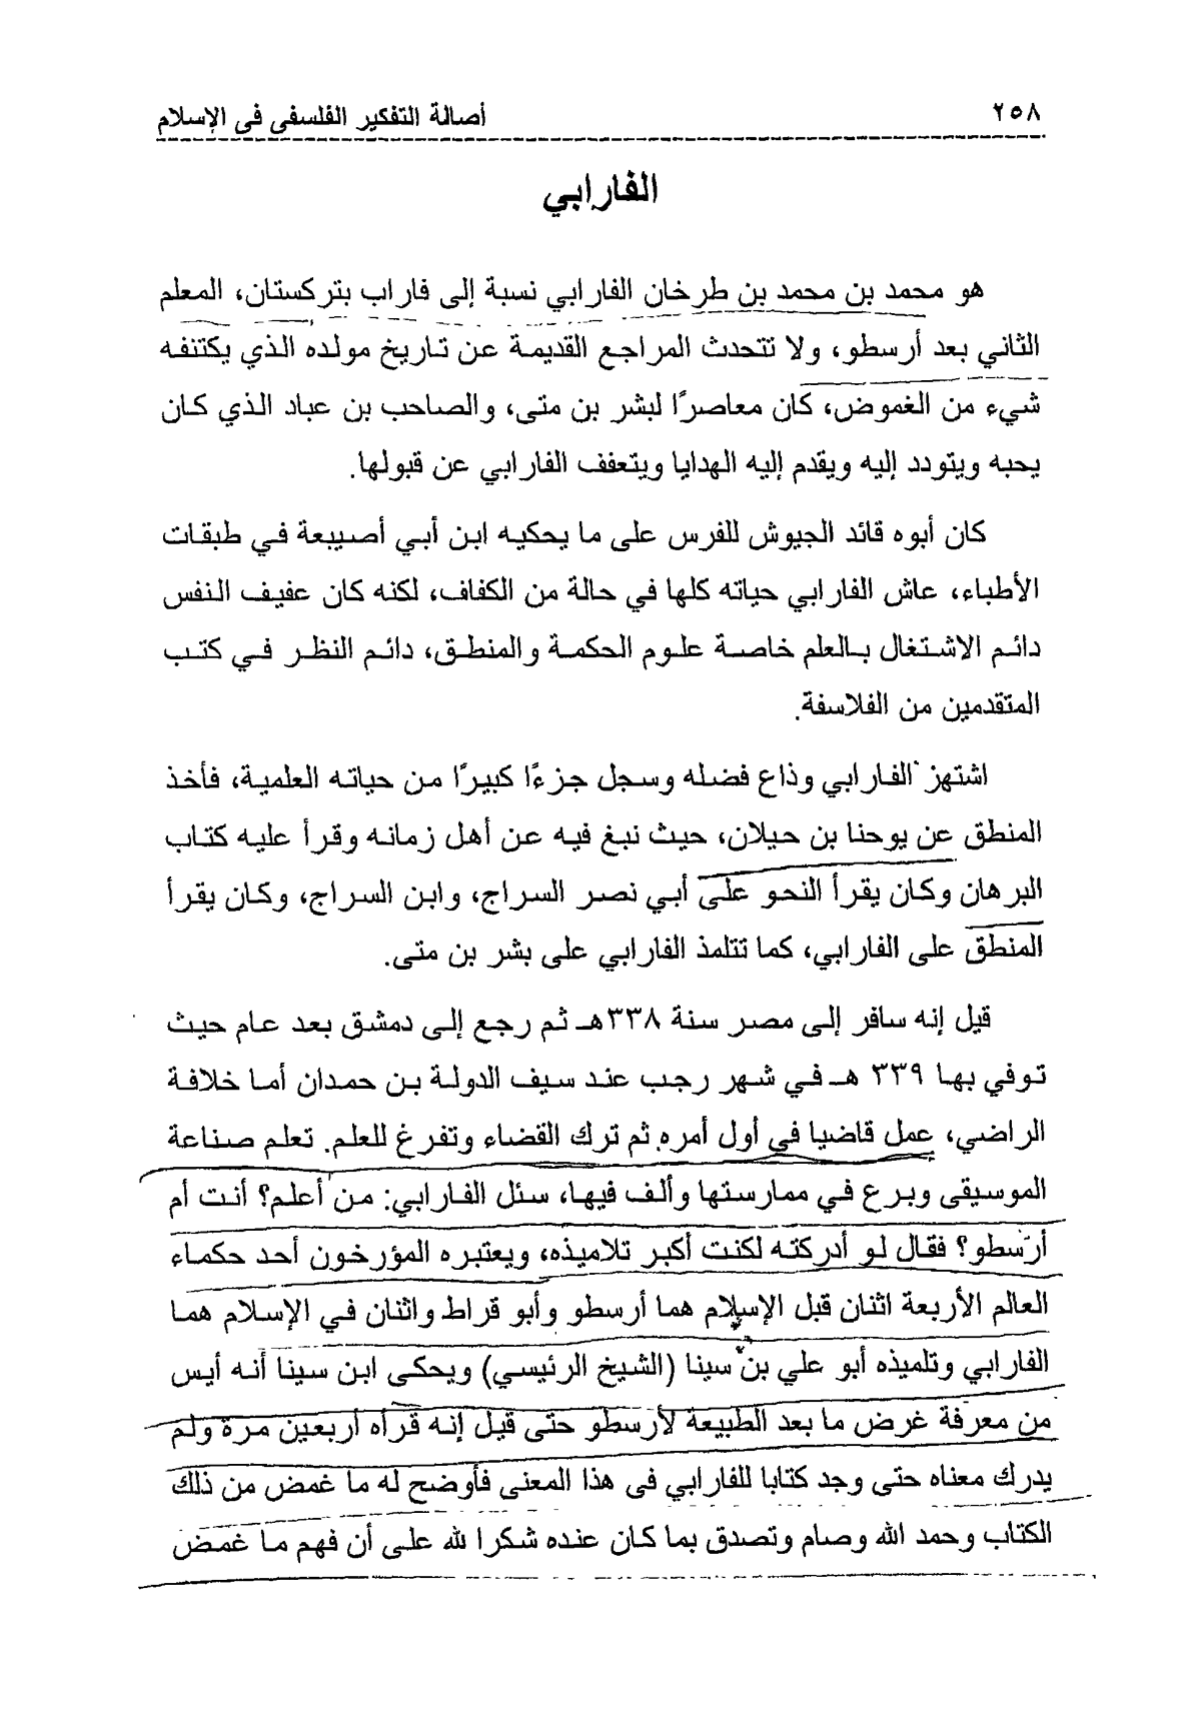 ٢٥٨
أصالة التفكير الفلسفى فى الإسلام
الفارابي
هو محمد بن محمد بن طرخان الفارابي نسبة إلى فاراب بتركستان، المعلم
الثاني بعد أرسطو، ولا تتحدث المراجع القديمة عن تاريخ مولده الذي يكتنفه
شيء من الغموض، كان معاصرًا لبشر بن متى، والصاحب بن عباد الذي كان
يحبه ويتودد إليه ويقدم إليه الهدايا ويتعفف الفارابي عن قبولها.
كان أبوه قائد الجيوش للفرس على ما يحكيه ابن أبي أصيبعة في طبقات
الأطباء، عاش الفارابي حياته كلها في حالة من الكفاف، لكنه كان عفيف النفس
دائم الاشتغال بالعلم خاصة علوم الحكمة والمنطق، دائم النظر في كتب
المتقدمين من الفلاسفة.
اشتهر الفارابي وذاع فضله وسجل جزءًا كبيرًا من حياته العلمية، فأخذ
المنطق عن يوحنا بن حيلان، حيث نبغ فيه عن أهل زمانه وقرأ عليه كتاب
البرهان وكان يقرأ النحو على أبي نصر السراج، وابن السراج، وكان يقرأ
المنطق على الفارابي، كما تتلمذ الفارابي على بشر بن متى.
قيل إنه سافر إلى مصر سنة ٣٣٨هـ ثم رجع إلى دمشق بعد عام حيث
توفي بها ٣٣٩ هـ في شهر رجب عند سيف الدولة بن حمدان أما خلافة
الراضي، عمل قاضيا في أول أمره ثم ترك القضاء وتفرغ للعلم. تعلم صناعة
الموسيقى وبرع في ممارستها وألف فيها، سئل الفارابي: من أعلم؟ أنت أم
أرسطو؟ فقال لو أدركته لكنت أكبر تلاميذه، ويعتبره المؤرخون أحد حكماء
العالم الأربعة اثنان قبل الإسلام هما أرسطو وأبو قراط واثنان في الإسلام هما
الفارابي وتلميذه أبو علي بن سينا (الشيخ الرئيسي) ويحكى ابن سينا أنه أيس
من معرفة غرض ما بعد الطبيعة لأرسطو حتى قيل إنه قرأه أربعين مرة ولم
يدرك معناه حتى وجد كتابا للفارابي فى هذا المعنى فأوضح له ما غمض من ذلك
الكتاب وحمد الله وصام وتصدق بما كان عنده شكرا لله على أن فهم ما غمض